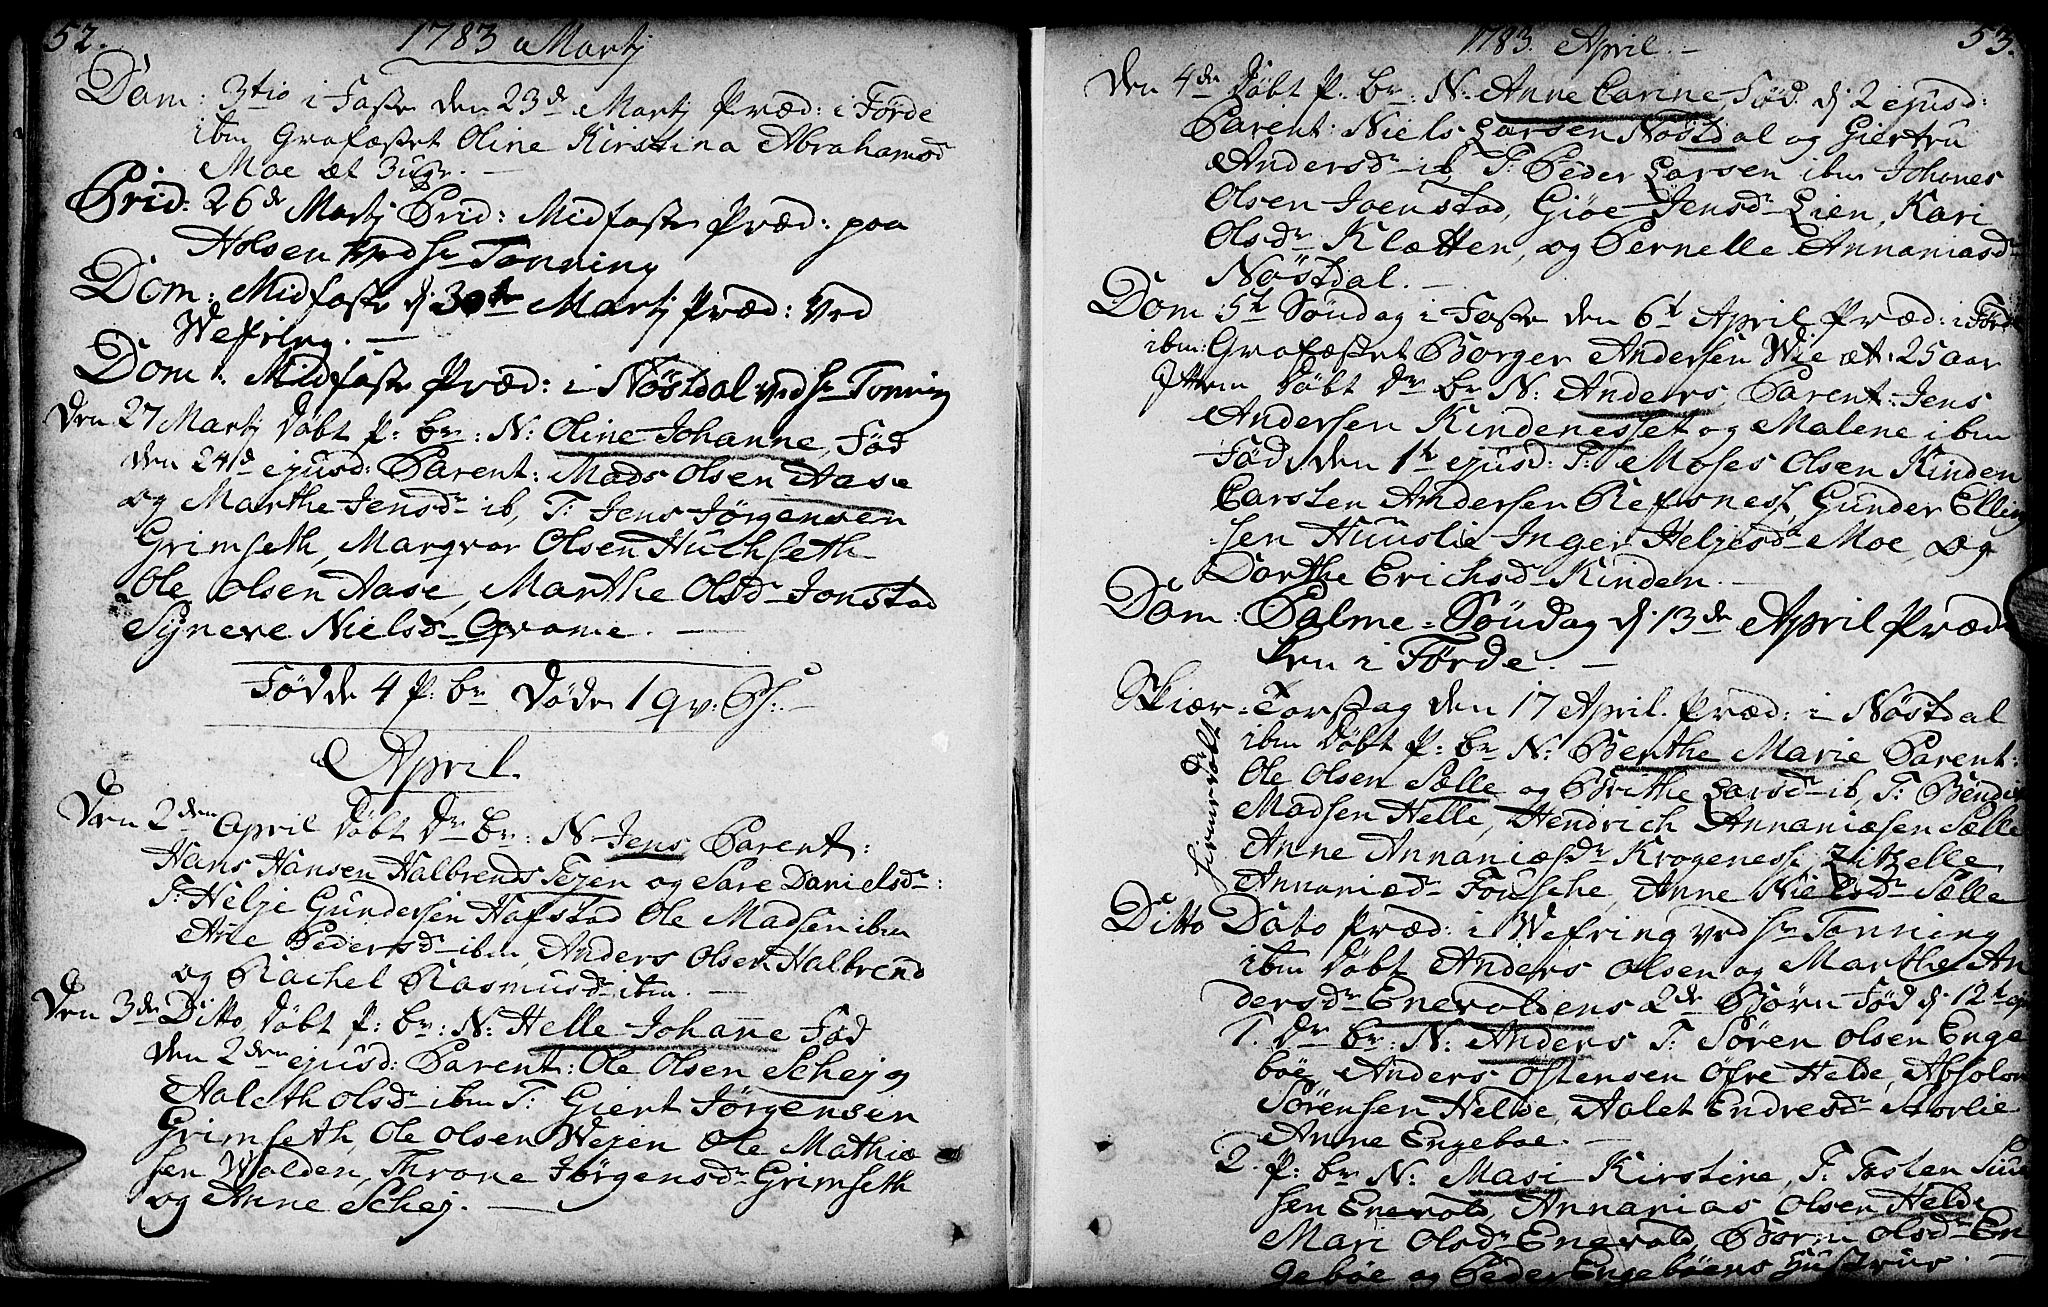 52. 1783 Martj
Dom: 3tio i Faste den 23de Martj Præd: i Førde
ibm Grafæstet Oline Kirstina Abrahamsd
Moe æt 3 ugr. —
Prid: 26de Martj Prid: Midfaste Præd: paa
Holsen ved Hr Tonning
Dom: Midfaste d. 30te Martj Præd: ved
Wefring. —
Dom: Midfaste Præd: i Nøstdal ved Hr Tonning
Den 27 Martj Døbt P: br: N: Oline Johanne, Fød
den 24de ejusd: Parent: Mads Olsen Aase
og Marthe Jensdr ib, T: Jens Jørgensen
Grimseth, Margvar Olsen Huchseth
Ole Olsen Aase, Marthe Olsdr Jonstad
Syneve Nielsdr Qvame. —
Fødde 4 P: br Døde 1 qv: P:. —
April.
Den 2den April Døbt Dr br: N: Jens, Parent:
Hans Hansen Halbrends Tejen og Sare Danielsdr:
T: Helje Gundersen Hafstad Ole Madsen ibm
Ane Pedersdr ibm, Anders Olsen Halbrend
og Rachel Rasmusdr ibm. —
Den 3de Ditto, Døbt P: br: N: Helle Johanne Fød
den 2den ejusd: Parent: Ole Olsen Schej og
Aaleth Olsdr ibm T: Giert Jørgensen
Grimseth, Ole Olsen Wejen Ole Mathiæ
sen Wolden, Throne Jørgensdr Grimseth
og Anne Schej. —
1783. April. — 53.
Den 4de Døbt P. br: N: Anne Carine, Fød d. 2 ejusd:
Parent: Niels Larsen Nøstdal og Giertru
Andersdr ib, T: Peder Larsen ibm Johanes
Olsen Joenstad, Giøe Jensdr Lien, Kari
Olsdr Klætten, og Pernelle Annaniasdr
Nøstdal. —
Dom 5te Søndag i Faste den 6te April Præd: i Førde
ibm: Grafæstet Borger Andersen Wie æt: 25 aar
Item Døbt Dr br N: Anders, Parent: Jens
Andersen Kindenesset og Malene ibm
Fød, den 1te ejusd: T: Moses Olsen Kinden
Carsten Andersen Refsnest, Gunder Elling
sen Huuslie Inger Heljesdr Moe, og
Dorthe Erichsdr Kinden. —
Dom: Palme-Søndag d. 13de April Præd
ken i Førde. —
Skiær-Torsdag den 17 April. Præd: i Nøstdal
ibm Døbt P: br N: Berthe Marie Parent:
Ole Olsen Sælle og Brithe Larsdr ib, T: Bendix
Madsen Helle, Hendrich Annaniæsen Sælle
Anne Annaniæsdr Krogeness, Zitzelle
Annaniædr Fousche, Anne Nielsdr Sælle
hiemedøbt
Ditto Dato Præd: i Wefring ved Hr Tonning
ibm Døbt Anders Olsen og Marthe An
dersdr Enevoldens 2de Børn Fød d. 12te
1. Dr br: N: Anders T: Søren Olsen Enge
bøe, Anders Østensen Øfre Helde, Absolon
Sørensen Helde, Aalet Endresdr Storlie
Anne Engeboe. —
2. P: br N: Masi Kirstine, T: Testen
sen Enevold, Annanias Olsen Helde
Mari Olsdr Enevold, Børni Olsdr En
gebøe og Peder Engebøens Hustrue. —